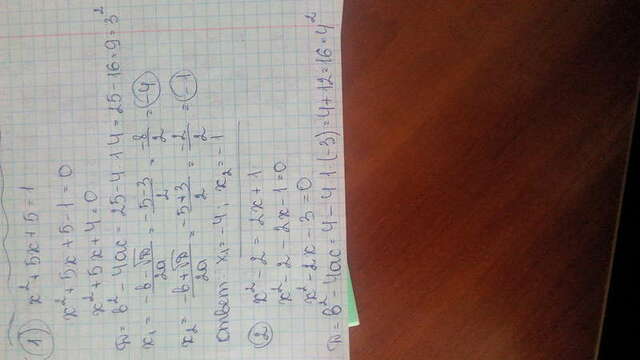 1) x² + 5x + 5 = 1
x² + 5x + 5 - 1 = 0
x² + 5x + 4 = 0
D = b² - 4ac = 25 - 4·1·4 = 25 - 16 = 9 = 3²
x₁ = (-b - √D)/2a = (-5 - 3)/2 = -8/2 = -4
x₂ = (-b + √D)/2a = (-5 + 3)/2 = -2/2 = -1
ответ: x₁ = -4; x₂ = -1
2) x² - 2 = 2x + 1
x² - 2 - 2x - 1 = 0
x² - 2x - 3 = 0
D = b² - 4ac = 4 - 4·1·(-3) = 4 + 12 = 16 = 4²